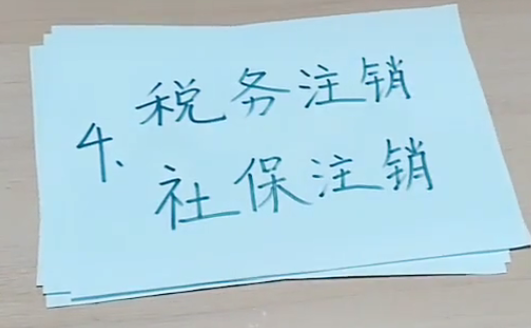 4、税务注销
社保注销